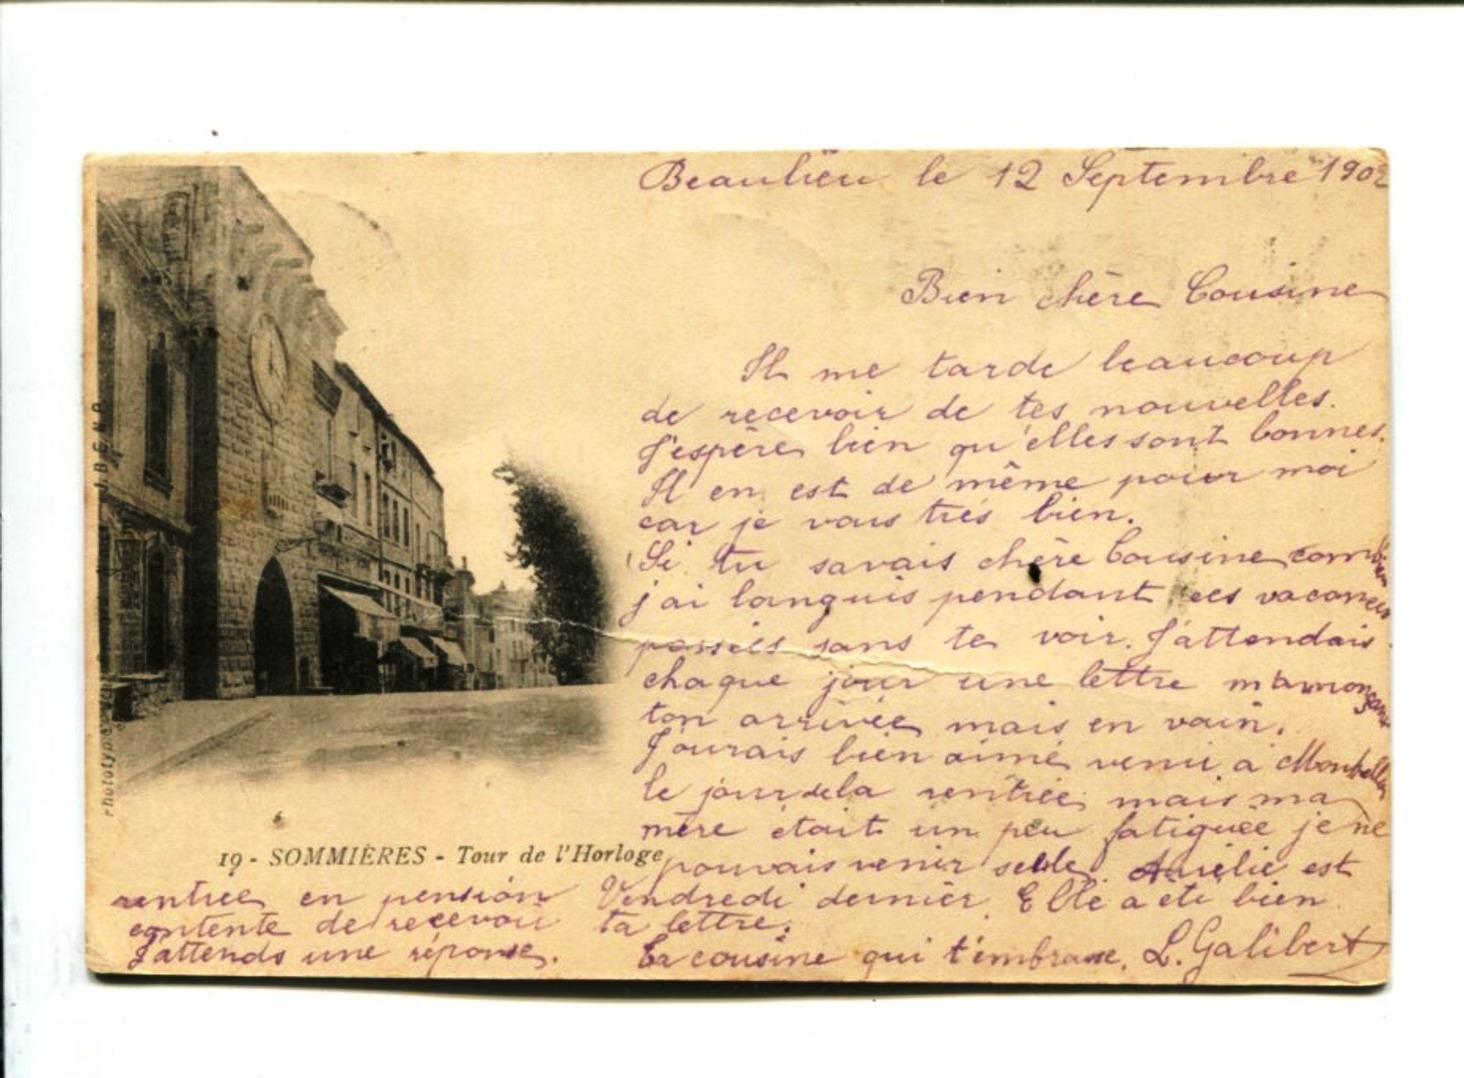 Beaulieu le 12 Septembre 1902
Bien chère Cousine
Il me tarde beaucoup
de recevoir de tes nouvelles.
J'espère bien qu'elles sont bonnes.
Il en est de même pour moi
car je vais très bien.
Si tu savais chère Cousine combien
j'ai languis pendant ces vacances
passées sans te voir. J'attendais
chaque jour une lettre m'annonçant
ton arrivée mais en vain.
J'ourais bien aimé venir à
le jour de la rentrée mais ma
mère était un peu fatiguée je ne
pouvais venir seule. Aurélie est
rentrée en pension Vendredi dernier. Elle a été bien
contente de recevoir ta lettre.
J'attends une réponse. Ta cousine qui t'embrasse. L. Galibert
19 - SOMMIÈRES - Tour de l'Horloge
Phototypie